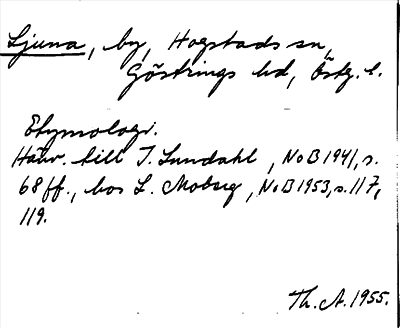 Ljuna, by, Hogstads sn,
Göstrings hd, Östg. l.
Etymologi.
Hänv. till I. Lundahl, NoB 1941, s.
68 ff., hos L. Moberg, NoB 1953, s. 117,
119.
Th. A. 1955.